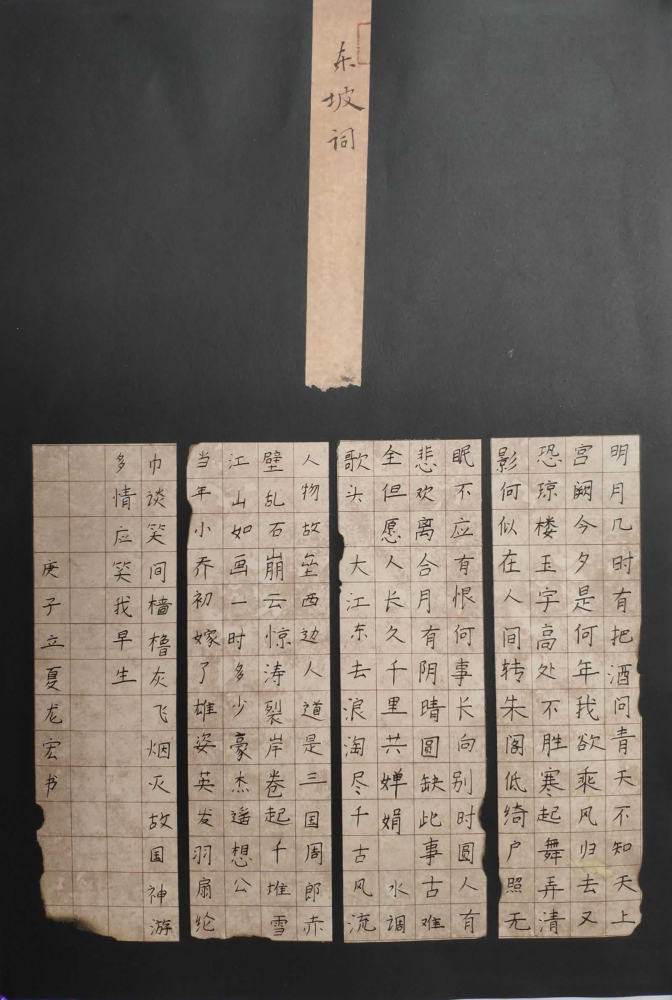 东坡词
明月几时有把酒问青天不知天上
宫阙今夕是何年我欲乘风归去又
恐琼楼玉宇高处不胜寒起舞弄清
影何似在人间转朱阁低绮户照无
眠不应有恨何事长向别时圆人有
悲欢离合月有阴晴圆缺此事古难
全但愿人长久千里共婵娟 水调
歌头 大江东去浪淘尽千古风流
人物故垒西边人道是三国周郎赤
壁乱石崩云惊涛裂岸卷起千堆雪
江山如画一时多少豪杰遥想公
当年小乔初嫁了雄姿英发羽扇纶
巾谈笑间樯橹灰飞烟灭故国神游
多情应笑我早生
庚子立夏龙宏书